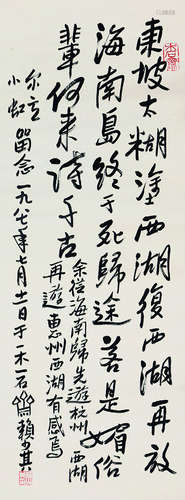 東坡太糊塗西湖復西湖再放
海南島終于死歸途若是媚俗
輩何来詩千古
余從海南歸先遊杭州西湖
再遊惠州西湖有感焉
尔立
小虹
留念一九八七年七月十一日于一木一石齋賴少其